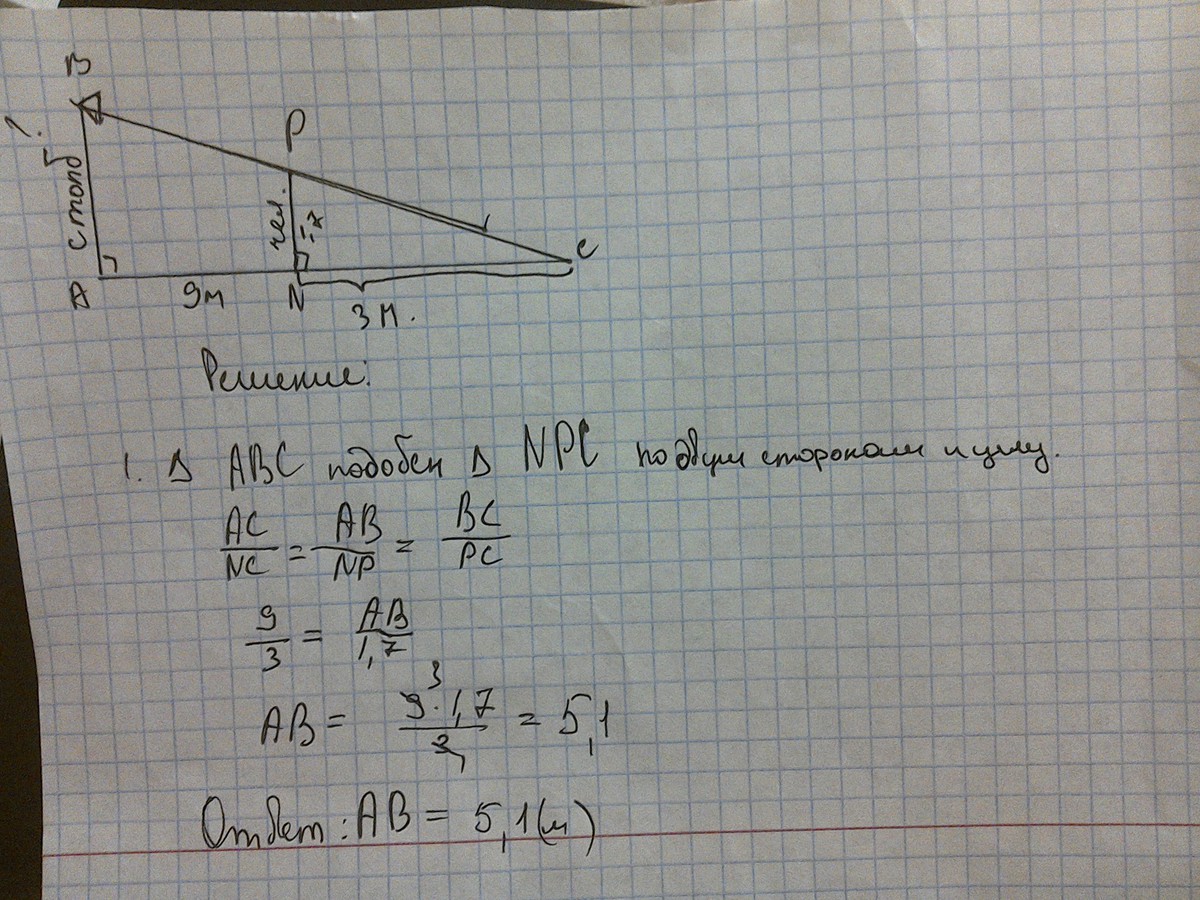 B
?
столб
P
чел.
1,7
C
A
9м
N
3м.
Решение:
1. Δ ABC подобен Δ NPC по двум сторонам и углу.
AC/NC = AB/NP = BC/PC
9/3 = AB/1,7
AB = 9³·1,7/3₁ = 5,1
Ответ: AB = 5,1(м)